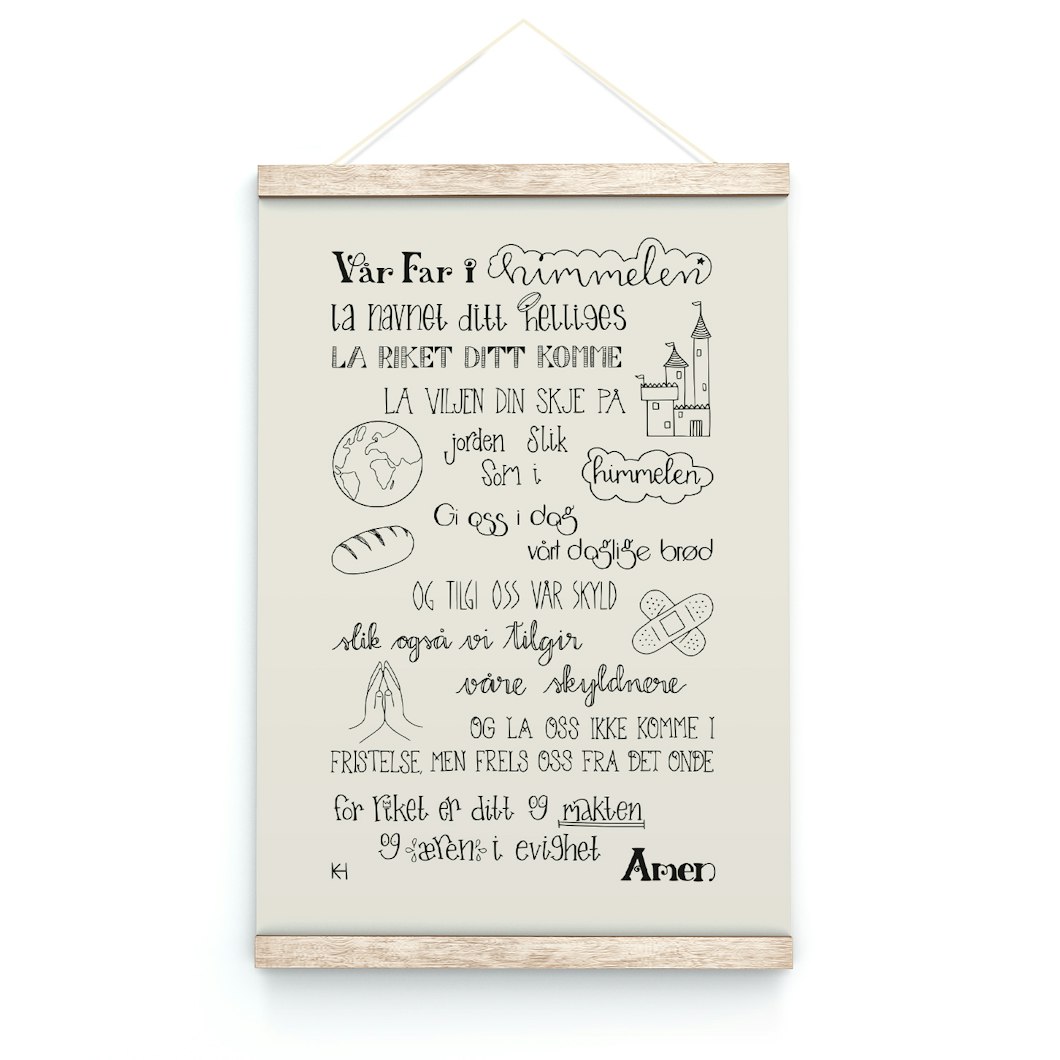 Vår Far i himmelen
la navnet ditt helliges
LA RIKET DITT KOMME
LA VILJEN DIN SKJE PÅ
jorden slik
som i himmelen
Gi oss i dag
vårt daglige brød
OG TILGI OSS VÅR SKYLD
slik også vi tilgir
våre skyldnere
OG LA OSS IKKE KOMME I
FRISTELSE, MEN FRELS OSS FRA DET ONDE
for riket er ditt og makten
og æren i evighet
Amen
KH